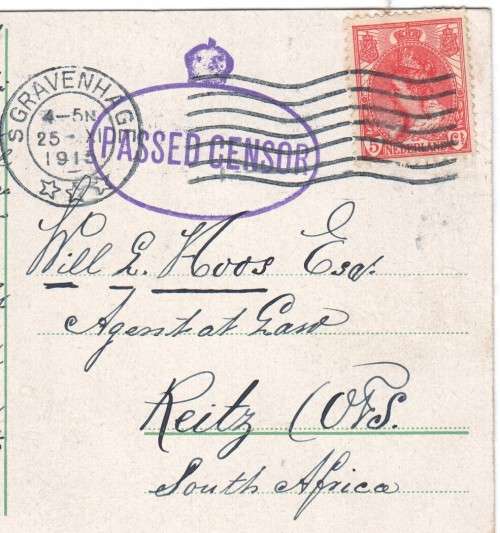 S GRAVENHAGE
4-5N
25
191
PASSED CENSOR
5 NEDERLAND Ct
Will L. Roos Esq.
Agent at Law
Reitz (OFS.
South Africa